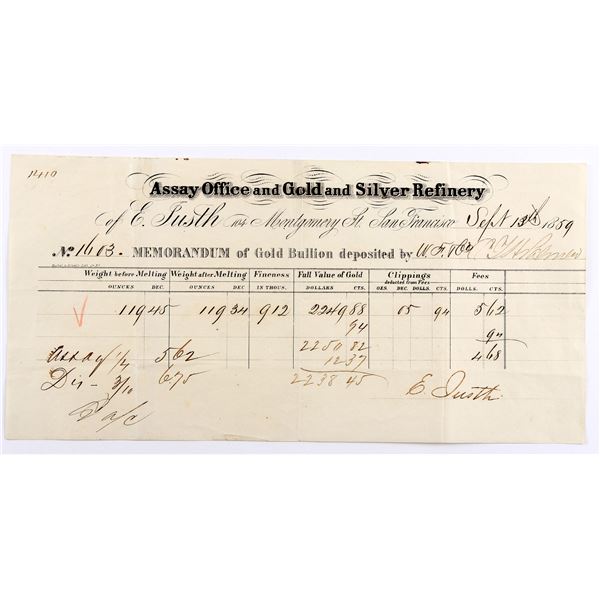 1410
Assay Office and Gold and Silver Refinery
of E. Justh 104 Montgomery St. San Francisco Sept 13th 1859
No. 1603. MEMORANDUM of Gold Bullion deposited by W. F. & Co
Weight before Melting Weight after Melting Fineness Full Value of Gold Clippings Fees
deducted from Fees
OUNCES DEC. OUNCES DEC. IN THOUS. DOLLARS CTS. OZS. DEC. DOLLS. CTS. DOLLS. CTS.
119 45 119 34 912 2249 88 05 94 5 62
94 94
2250 82
Assay 1/4 5 62 12 37 4 68
Dis - 3/10 6 75 2238 45 E. Justh.
a/c